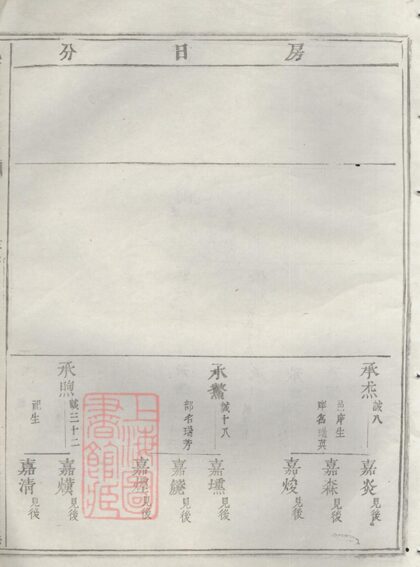 房日分
承杰 誠八
邑庠生
嘉炎 見後
嘉森 見後
嘉焌 見後
承鰲 誠十八
部名瑞芳
嘉壎 見後
嘉 見後
嘉 見後
承煦 誠三十二
嘉熿 見後
嘉清 見後
上海圖書館藏